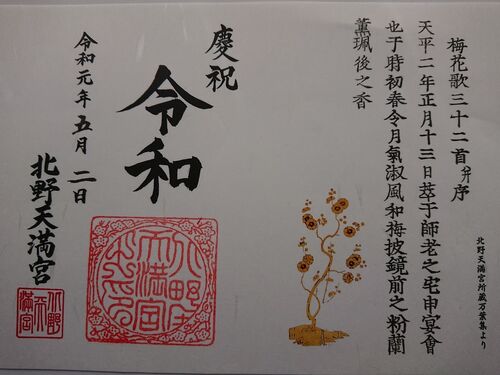 北野天満宮所蔵万葉集より
梅花歌三十二首并序
天平二年正月十三日萃于師老之宅申宴會
也于時初春令月氣淑風和梅披鏡前之粉蘭
薫珮後之香
慶祝
令和
令和元年五月二日
北野天満宮